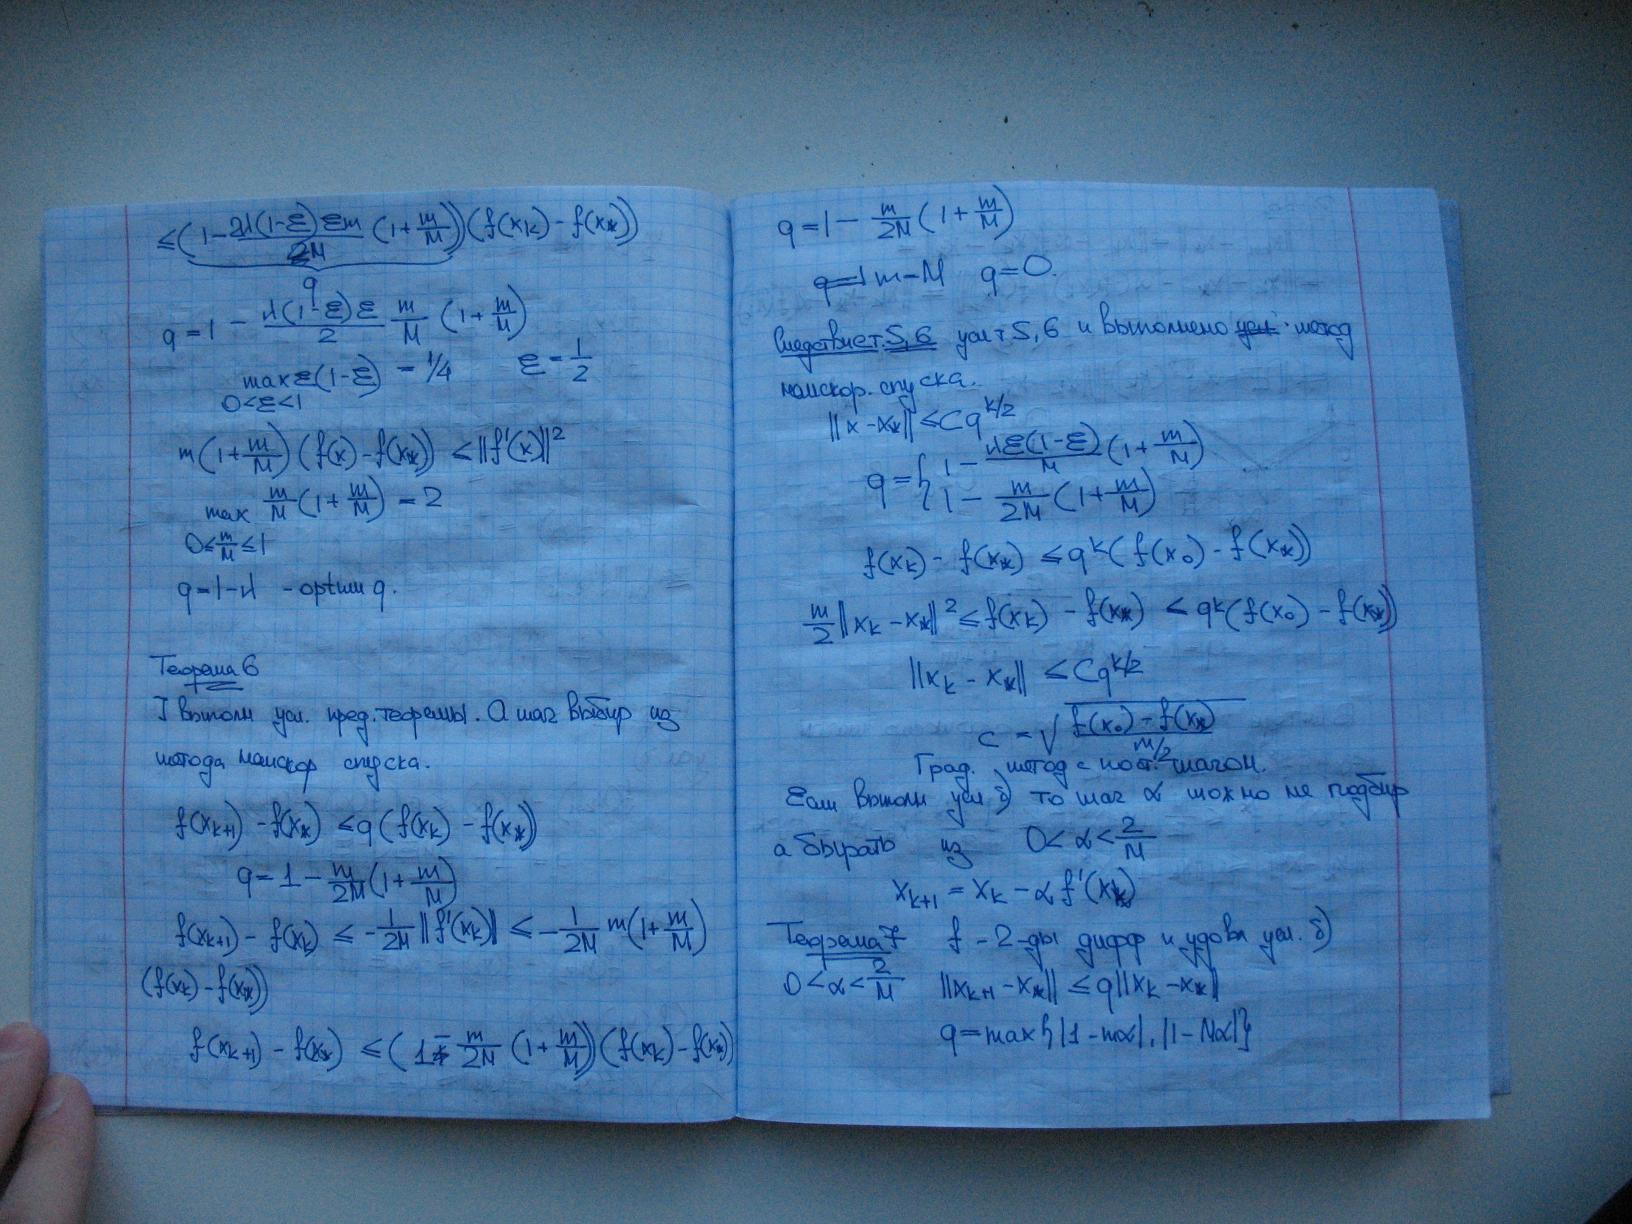 ≤(1 - 2λ(1-ε)εm/2M (1+m/M))(f(x_k) - f(x_*))
q
q = 1 - λ(1-ε)ε/2 m/M (1+m/M)
max ε(1-ε) = 1/4 ε = 1/2
0<ε<1
m(1+m/M)(f(x) - f(x_*)) ≤ ||f'(x)||²
max m/M (1+m/M) = 2
0≤m/M≤1
q = 1-λ - optим q.
Теорема 6
] выполн усл. пред. теоремы. А шаг выбир из
метода наискор спуска.
f(x_{k+1}) - f(x_*) ≤ q(f(x_k) - f(x_*))
q = 1 - m/2M (1+m/M)
f(x_{k+1}) - f(x_k) ≤ -1/2M ||f'(x_k)|| ≤ -1/2M m(1+m/M)
(f(x_k) - f(x_*))
f(x_{k+1}) - f(x_*) ≤ (1 - m/2M (1+m/M))(f(x_k) - f(x_*))
q = 1 - m/2M (1+m/M)
m=M q=0.
Следствие т. 5,6 усл т 5,6 и выполнено метод
наискор. спуска.
||x - x_*|| ≤ Cq^{k/2}
q = { 1 - λε(1-ε)/M (1+m/M)
1 - m/2M (1+m/M)
f(x_k) - f(x_*) ≤ q^k (f(x_0) - f(x_*))
m/2 ||x_k - x_*||² ≤ f(x_k) - f(x_*) ≤ q^k (f(x_0) - f(x_*))
||x_k - x_*|| ≤ Cq^{k/2}
c = √((f(x_0) - f(x_*))/(m/2))
Град. метод с пост. шагом.
Если выполн усл б) то шаг α можно не подбир
а бырать из 0<α<2/M
x_{k+1} = x_k - αf'(x_k)
Теорема 7 f - 2-ды дифф и удовл усл. б)
0<α<2/M ||x_{k+1} - x_*|| ≤ q||x_k - x_*||
q = max{|1 - mα|, |1 - Mα|}